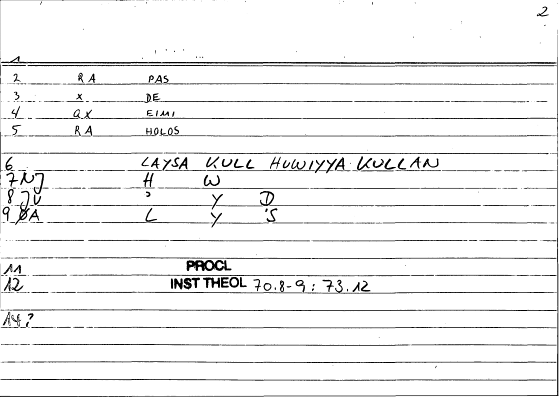 2
1
2 RA PAS
3 x DE
4 ax EIMI
5 RA HOLOS
6 LAYSA KULL HUWIYYA KULLAN
7 NJ H W
8 JU ʾ Y D
9 A L Y 'S
11 PROCL
12 INST THEOL 70.8-9 : 73.12